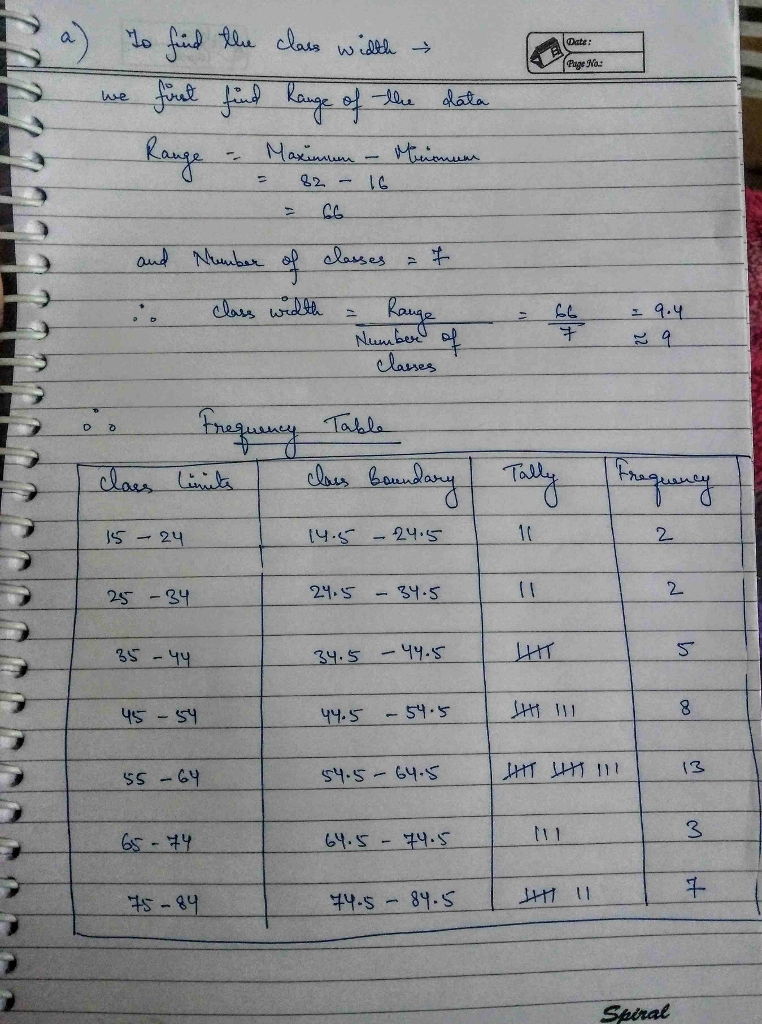 a) To find the class width →
Date :
Page No.:
we first find Range of the data
Range = Maximum - Minimum
= 82 - 16
= 66
and Number of classes = 7
∴ class width = Range / Number of classes = 66/7 = 9.4
≈ 9
∴ Frequency Table
Class Limits Class Boundary Tally Frequency
15 - 24 14.5 - 24.5 || 2
25 - 34 24.5 - 34.5 || 2
35 - 44 34.5 - 44.5 𝍸 5
45 - 54 44.5 - 54.5 𝍸 ||| 8
55 - 64 54.5 - 64.5 𝍸 𝍸 ||| 13
65 - 74 64.5 - 74.5 ||| 3
75 - 84 74.5 - 84.5 𝍸 || 7
Spiral